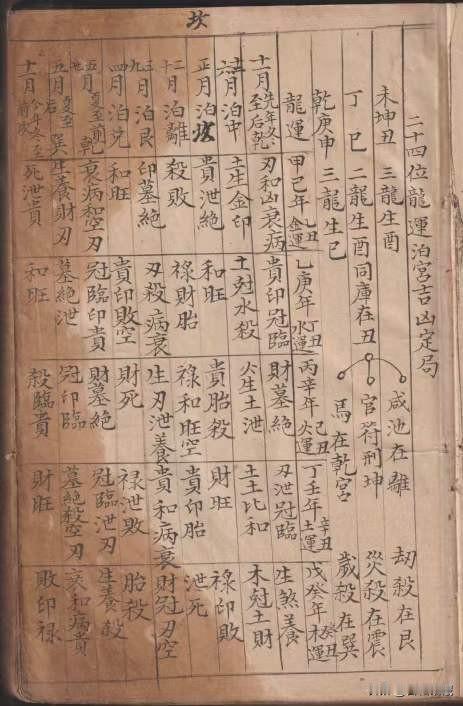 坎
二十四位龍運泊宮吉凶定局
未坤丑 三龍生酉 咸池在離 劫殺在艮
丁巳 二龍生酉同庫在丑 官符刑坤 災殺在震
乾庚申 三龍生巳 馬在乾宮 歲殺在巽
龍運 甲己年乙丑金運 乙庚年丁丑水運 丙辛年己丑火運 丁壬年辛丑土運 戊癸年癸丑木運
十一月先年冬至后乾 刃和凶衰病 貴印冠臨 財墓絕 刃泄冠臨 生煞養
月泊中 土生金印 土尅水殺 火生土泄 土土比和 木尅土財
正月泊坎 貴泄絕 和旺 貴胎殺 財旺 祿印敗
二月泊離 殺敗 祿財胎 祿和旺空 貴印胎 泄死
三九月泊艮 印墓絕 刃殺病衰 生刃泄養 貴和病衰 財冠刃空
四月泊兌 和旺 貴印敗空 財死 祿泄敗 胎殺
五月夏至前乾 衰病和空刃 冠臨印貴 財墓絕 冠臨泄刃 生養殺
五月夏至后巽 生養財刃 墓絕泄 冠印臨 墓絕殺空刃 衰和病貴
十一月今年冬至前 死泄貴 和旺 殺臨貴 財旺 敗印祿